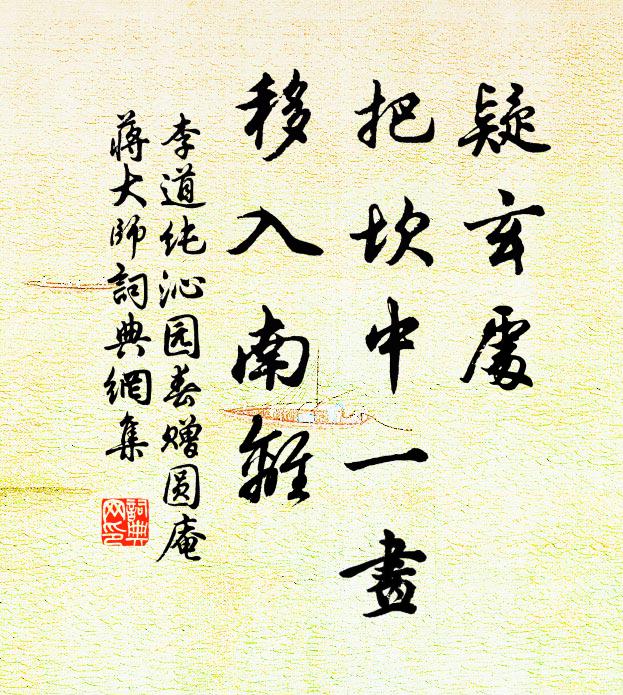 疑玄處
把坎中一畫
移入南離
李道纯沁园春赠圆庵
蔣大師詞典網集
詞典網印